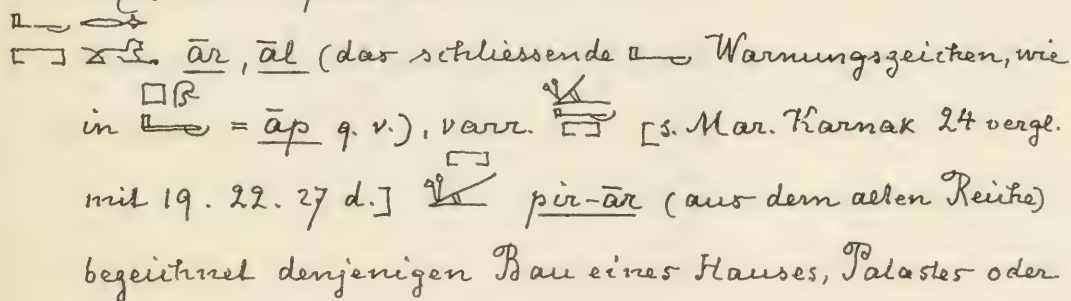 ār, āl (das schliessende Warnungszeichen, wie
in = āp q. v.), varr. [s. Mar. Karnak 24 vergl.
mit 19. 22. 27 d.] pir-ār (aus dem alten Reiche)
bezeichnet denjenigen Bau eines Hauses, Palastes oder